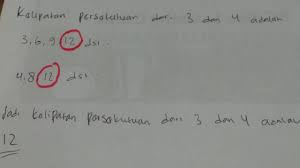 Kelipatan persekutuan dari 3 dan 4 adalah
3, 6, 9, 12 dst..
4, 8, 12 dst..
Jadi kelipatan persekutuan dari 3 dan 4 adalah
12